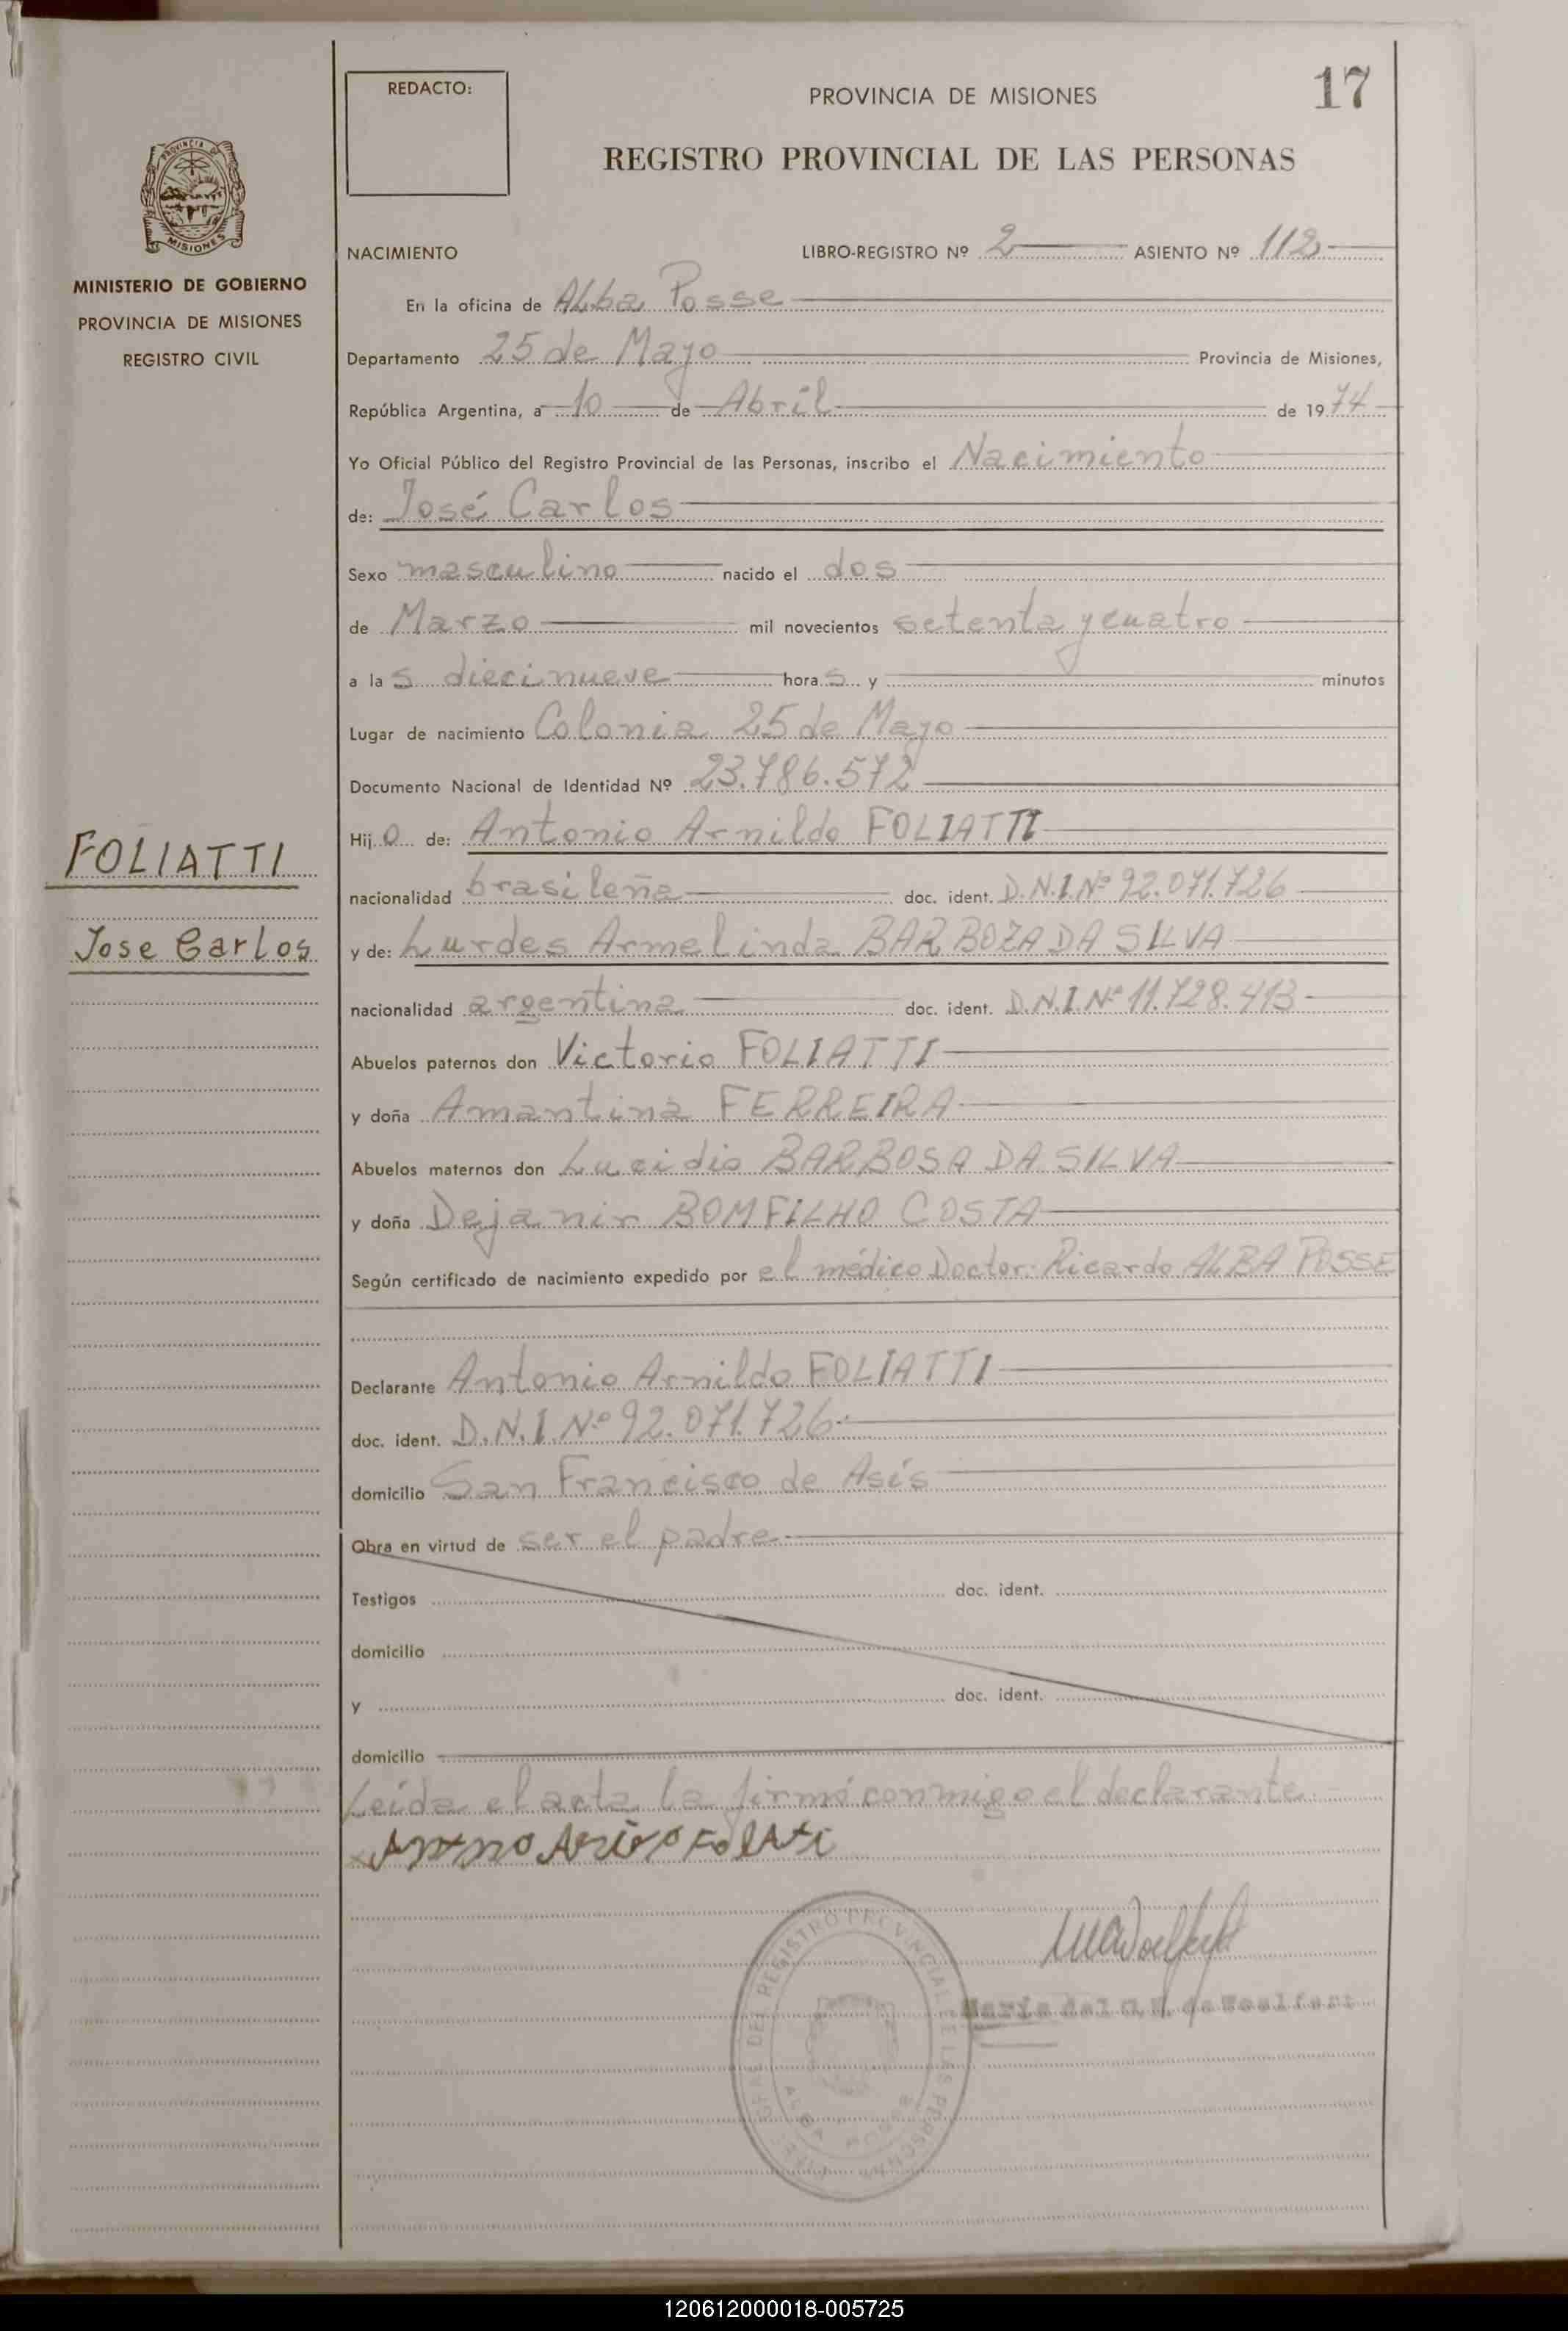 17
REDACTO:
PROVINCIA DE MISIONES
REGISTRO PROVINCIAL DE LAS PERSONAS
PROVINCIA DE
MISIONES
MINISTERIO DE GOBIERNO
PROVINCIA DE MISIONES
REGISTRO CIVIL
FOLIATTI
Jose Carlos
NACIMIENTO LIBRO-REGISTRO Nº 2 ASIENTO Nº 112
En la oficina de Alba Posse
Departamento 25 de Mayo Provincia de Misiones,
República Argentina, a 10 de Abril de 1974
Yo Oficial Público del Registro Provincial de las Personas, inscribo el Nacimiento
de: José Carlos
Sexo masculino nacido el dos
de Marzo mil novecientos setenta y cuatro
a las diecinueve horas y minutos
Lugar de nacimiento Colonia 25 de Mayo
Documento Nacional de Identidad Nº 23.786.572
Hijo de: Antonio Arnildo FOLIATTI
nacionalidad brasileña doc. ident. D.N.I.Nº 92.071.726
y de: Lurdes Armelinda BARBOZA DA SILVA
nacionalidad argentina doc. ident. D.N.I.Nº 11.728.413
Abuelos paternos don Victorio FOLIATTI
y doña Amantina FERREIRA
Abuelos maternos don Lucidio BARBOSA DA SILVA
y doña Dejanir BOMFILHO COSTA
Según certificado de nacimiento expedido por el médico Doctor: Ricardo ALBA POSSE
Declarante Antonio Arnildo FOLIATTI
doc. ident. D.N.I Nº 92.071.726
domicilio San Francisco de Asís
Obra en virtud de ser el padre
Testigos doc. ident.
domicilio
y doc. ident.
domicilio
Leída el acta la firmó conmigo el declarante
DEL REGISTRO PROVINCIAL DE LAS PERSONAS
ALBA POSSE
120612000018-005725